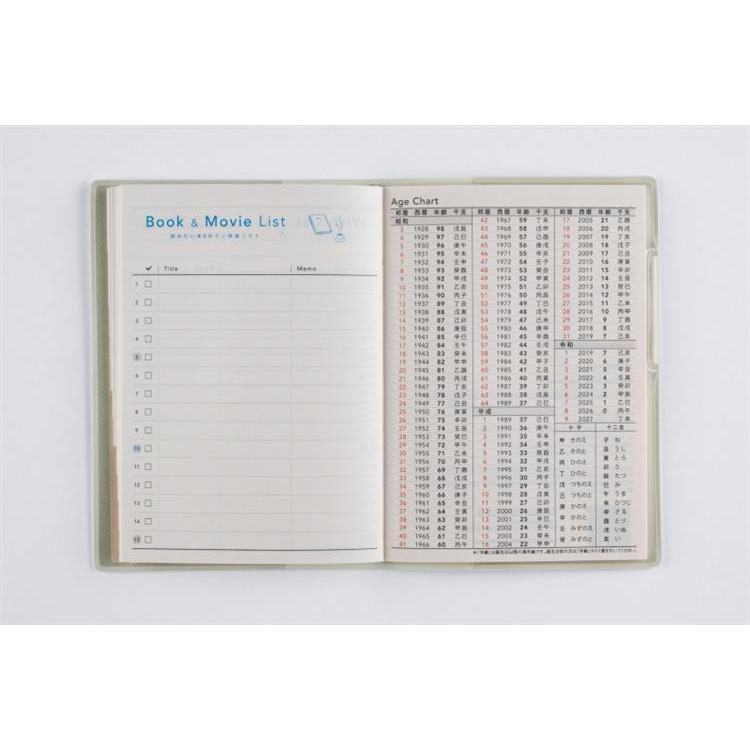 Book & Movie List
読みたい本&みたい映画リスト
✓ Title Memo
1
2
3
4
5
6
7
8
9
10
11
12
13
14
15
Age Chart
邦暦 西暦 年齢 干支
昭和
3 1928 98 戊辰
4 1929 97 己巳
5 1930 96 庚午
6 1931 95 辛未
7 1932 94 壬申
8 1933 93 癸酉
9 1934 92 甲戌
10 1935 91 乙亥
11 1936 90 丙子
12 1937 89 丁丑
13 1938 88 戊寅
14 1939 87 己卯
15 1940 86 庚辰
16 1941 85 辛巳
17 1942 84 壬午
18 1943 83 癸未
19 1944 82 甲申
20 1945 81 乙酉
21 1946 80 丙戌
22 1947 79 丁亥
23 1948 78 戊子
24 1949 77 己丑
25 1950 76 庚寅
26 1951 75 辛卯
27 1952 74 壬辰
28 1953 73 癸巳
29 1954 72 甲午
30 1955 71 乙未
31 1956 70 丙申
32 1957 69 丁酉
33 1958 68 戊戌
34 1959 67 己亥
35 1960 66 庚子
36 1961 65 辛丑
37 1962 64 壬寅
38 1963 63 癸卯
39 1964 62 甲辰
40 1965 61 乙巳
41 1966 60 丙午
邦暦 西暦 年齢 干支
42 1967 59 丁未
43 1968 58 戊申
44 1969 57 己酉
45 1970 56 庚戌
46 1971 55 辛亥
47 1972 54 壬子
48 1973 53 癸丑
49 1974 52 甲寅
50 1975 51 乙卯
51 1976 50 丙辰
52 1977 49 丁巳
53 1978 48 戊午
54 1979 47 己未
55 1980 46 庚申
56 1981 45 辛酉
57 1982 44 壬戌
58 1983 43 癸亥
59 1984 42 甲子
60 1985 41 乙丑
61 1986 40 丙寅
62 1987 39 丁卯
63 1988 38 戊辰
64 1989 37 己巳
平成
1 1989 37 己巳
2 1990 36 庚午
3 1991 35 辛未
4 1992 34 壬申
5 1993 33 癸酉
6 1994 32 甲戌
7 1995 31 乙亥
8 1996 30 丙子
9 1997 29 丁丑
10 1998 28 戊寅
11 1999 27 己卯
12 2000 26 庚辰
13 2001 25 辛巳
14 2002 24 壬午
15 2003 23 癸未
16 2004 22 甲申
邦暦 西暦 年齢 干支
17 2005 21 乙酉
18 2006 20 丙戌
19 2007 19 丁亥
20 2008 18 戊子
21 2009 17 己丑
22 2010 16 庚寅
23 2011 15 辛卯
24 2012 14 壬辰
25 2013 13 癸巳
26 2014 12 甲午
27 2015 11 乙未
28 2016 10 丙申
29 2017 9 丁酉
30 2018 8 戊戌
31 2019 7 己亥
令和
1 2019 7 己亥
2 2020 6 庚子
3 2021 5 辛丑
4 2022 4 壬寅
5 2023 3 癸卯
6 2024 2 甲辰
7 2025 1 乙巳
8 2026 0 丙午
9 2027 - 丁未
十干
甲 きのえ
乙 きのと
丙 ひのえ
丁 ひのと
戊 つちのえ
己 つちのと
庚 かのえ
辛 かのと
壬 みずのえ
癸 みずのと
十二支
子 ね
丑 うし
寅 とら
卯 う
辰 たつ
巳 み
午 うま
未 ひつじ
申 さる
酉 とり
戌 いぬ
亥 い
※「年齢」は誕生日以降の満年齢です。誕生日前の方は「年齢」から1歳を引いてください。